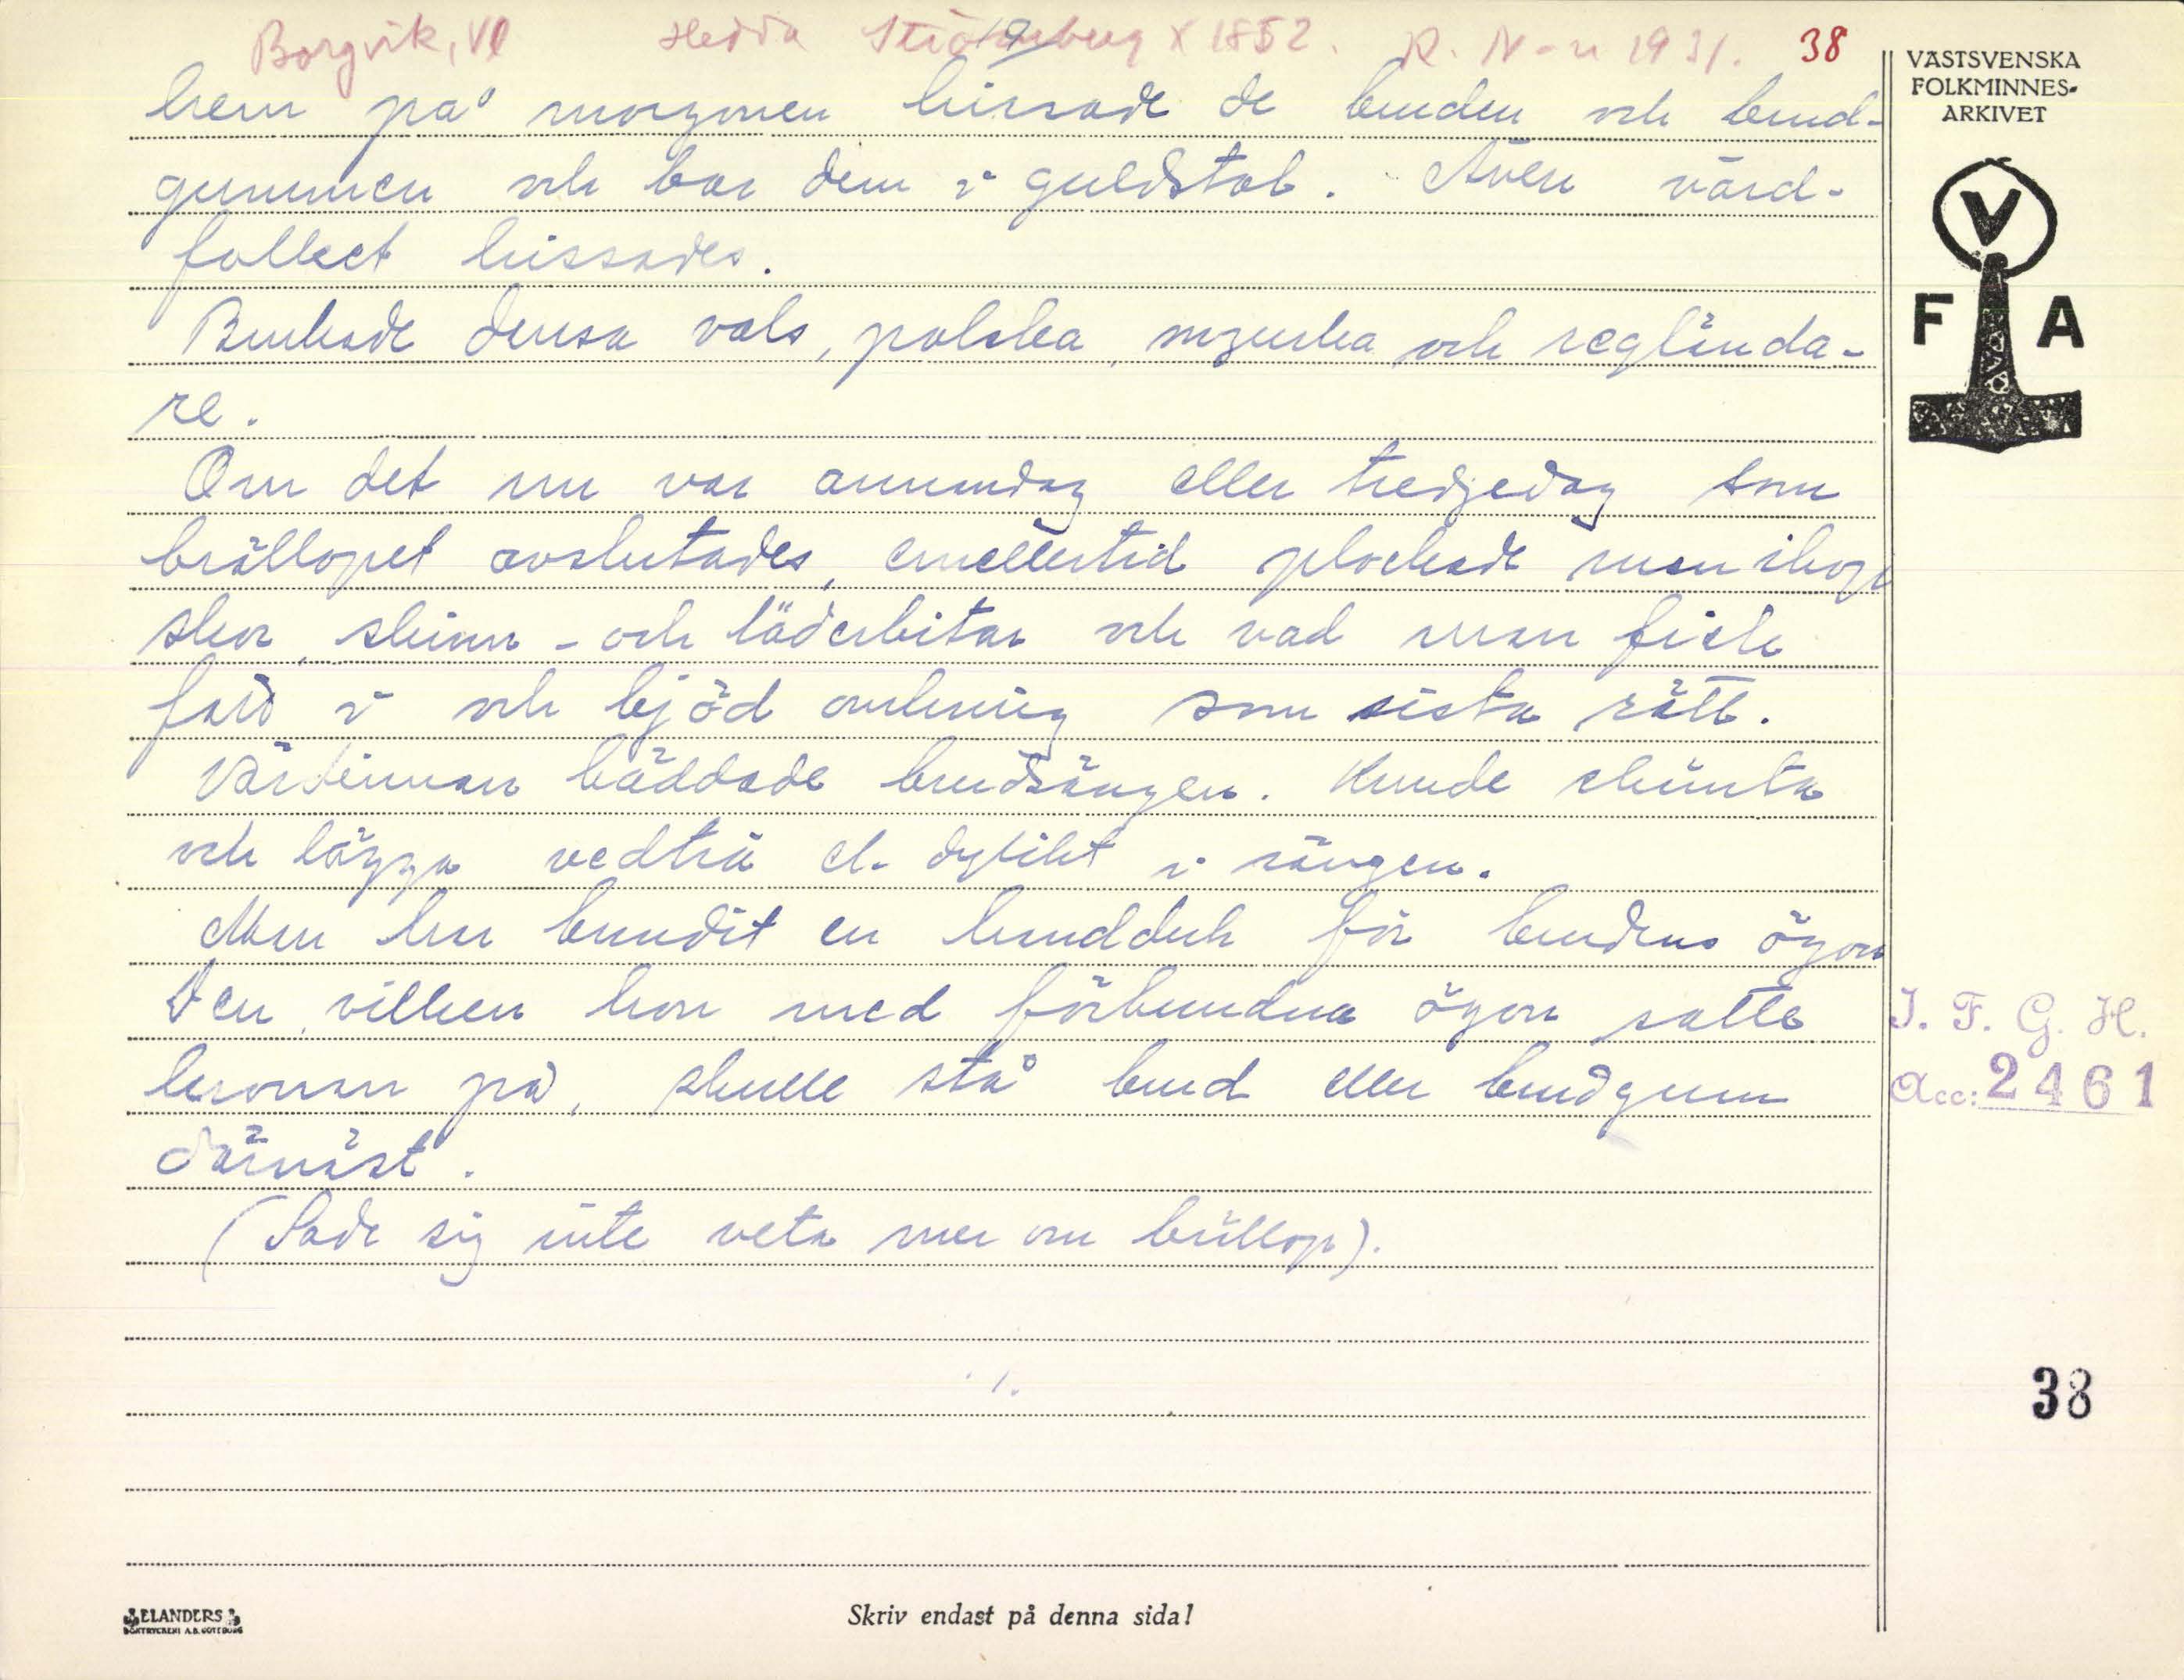 Borgvik, Vl Hedda Strömberg X 1852. R. N-n 1931. 38
12
VÄSTSVENSKA
FOLKMINNES-
ARKIVET
V
F A
hem på morgonen hissade de bruden och brud-
gummen och bar dem i guldstol. Även värd-
folket hissades.
Brukade dansa vals, polska, mzurka och reglända-
re.
Om det nu var annandag eller tredjedag som
bröllopet avslutades, emellertid plockade man ihop
skor, skinn- och läderbitar och vad man fick
fatt i och bjöd omkring som sista rätt.
Värdinnan bäddade brudsängen. Kunde skämta
och lägga vedträ el. dylikt i sängen.
Man har bundit en handduk för brudens ögon
Den, vilken hon med förbundna ögon satte
kronan på, skulle stå brud eller brudgum
därnäst.
(Sade sig inte veta mer om bröllop).
I. F. G. H.
Acc: 2461
38
ELANDERS
BOKTRYCKERI A.B. GÖTEBORG
Skriv endast på denna sida!